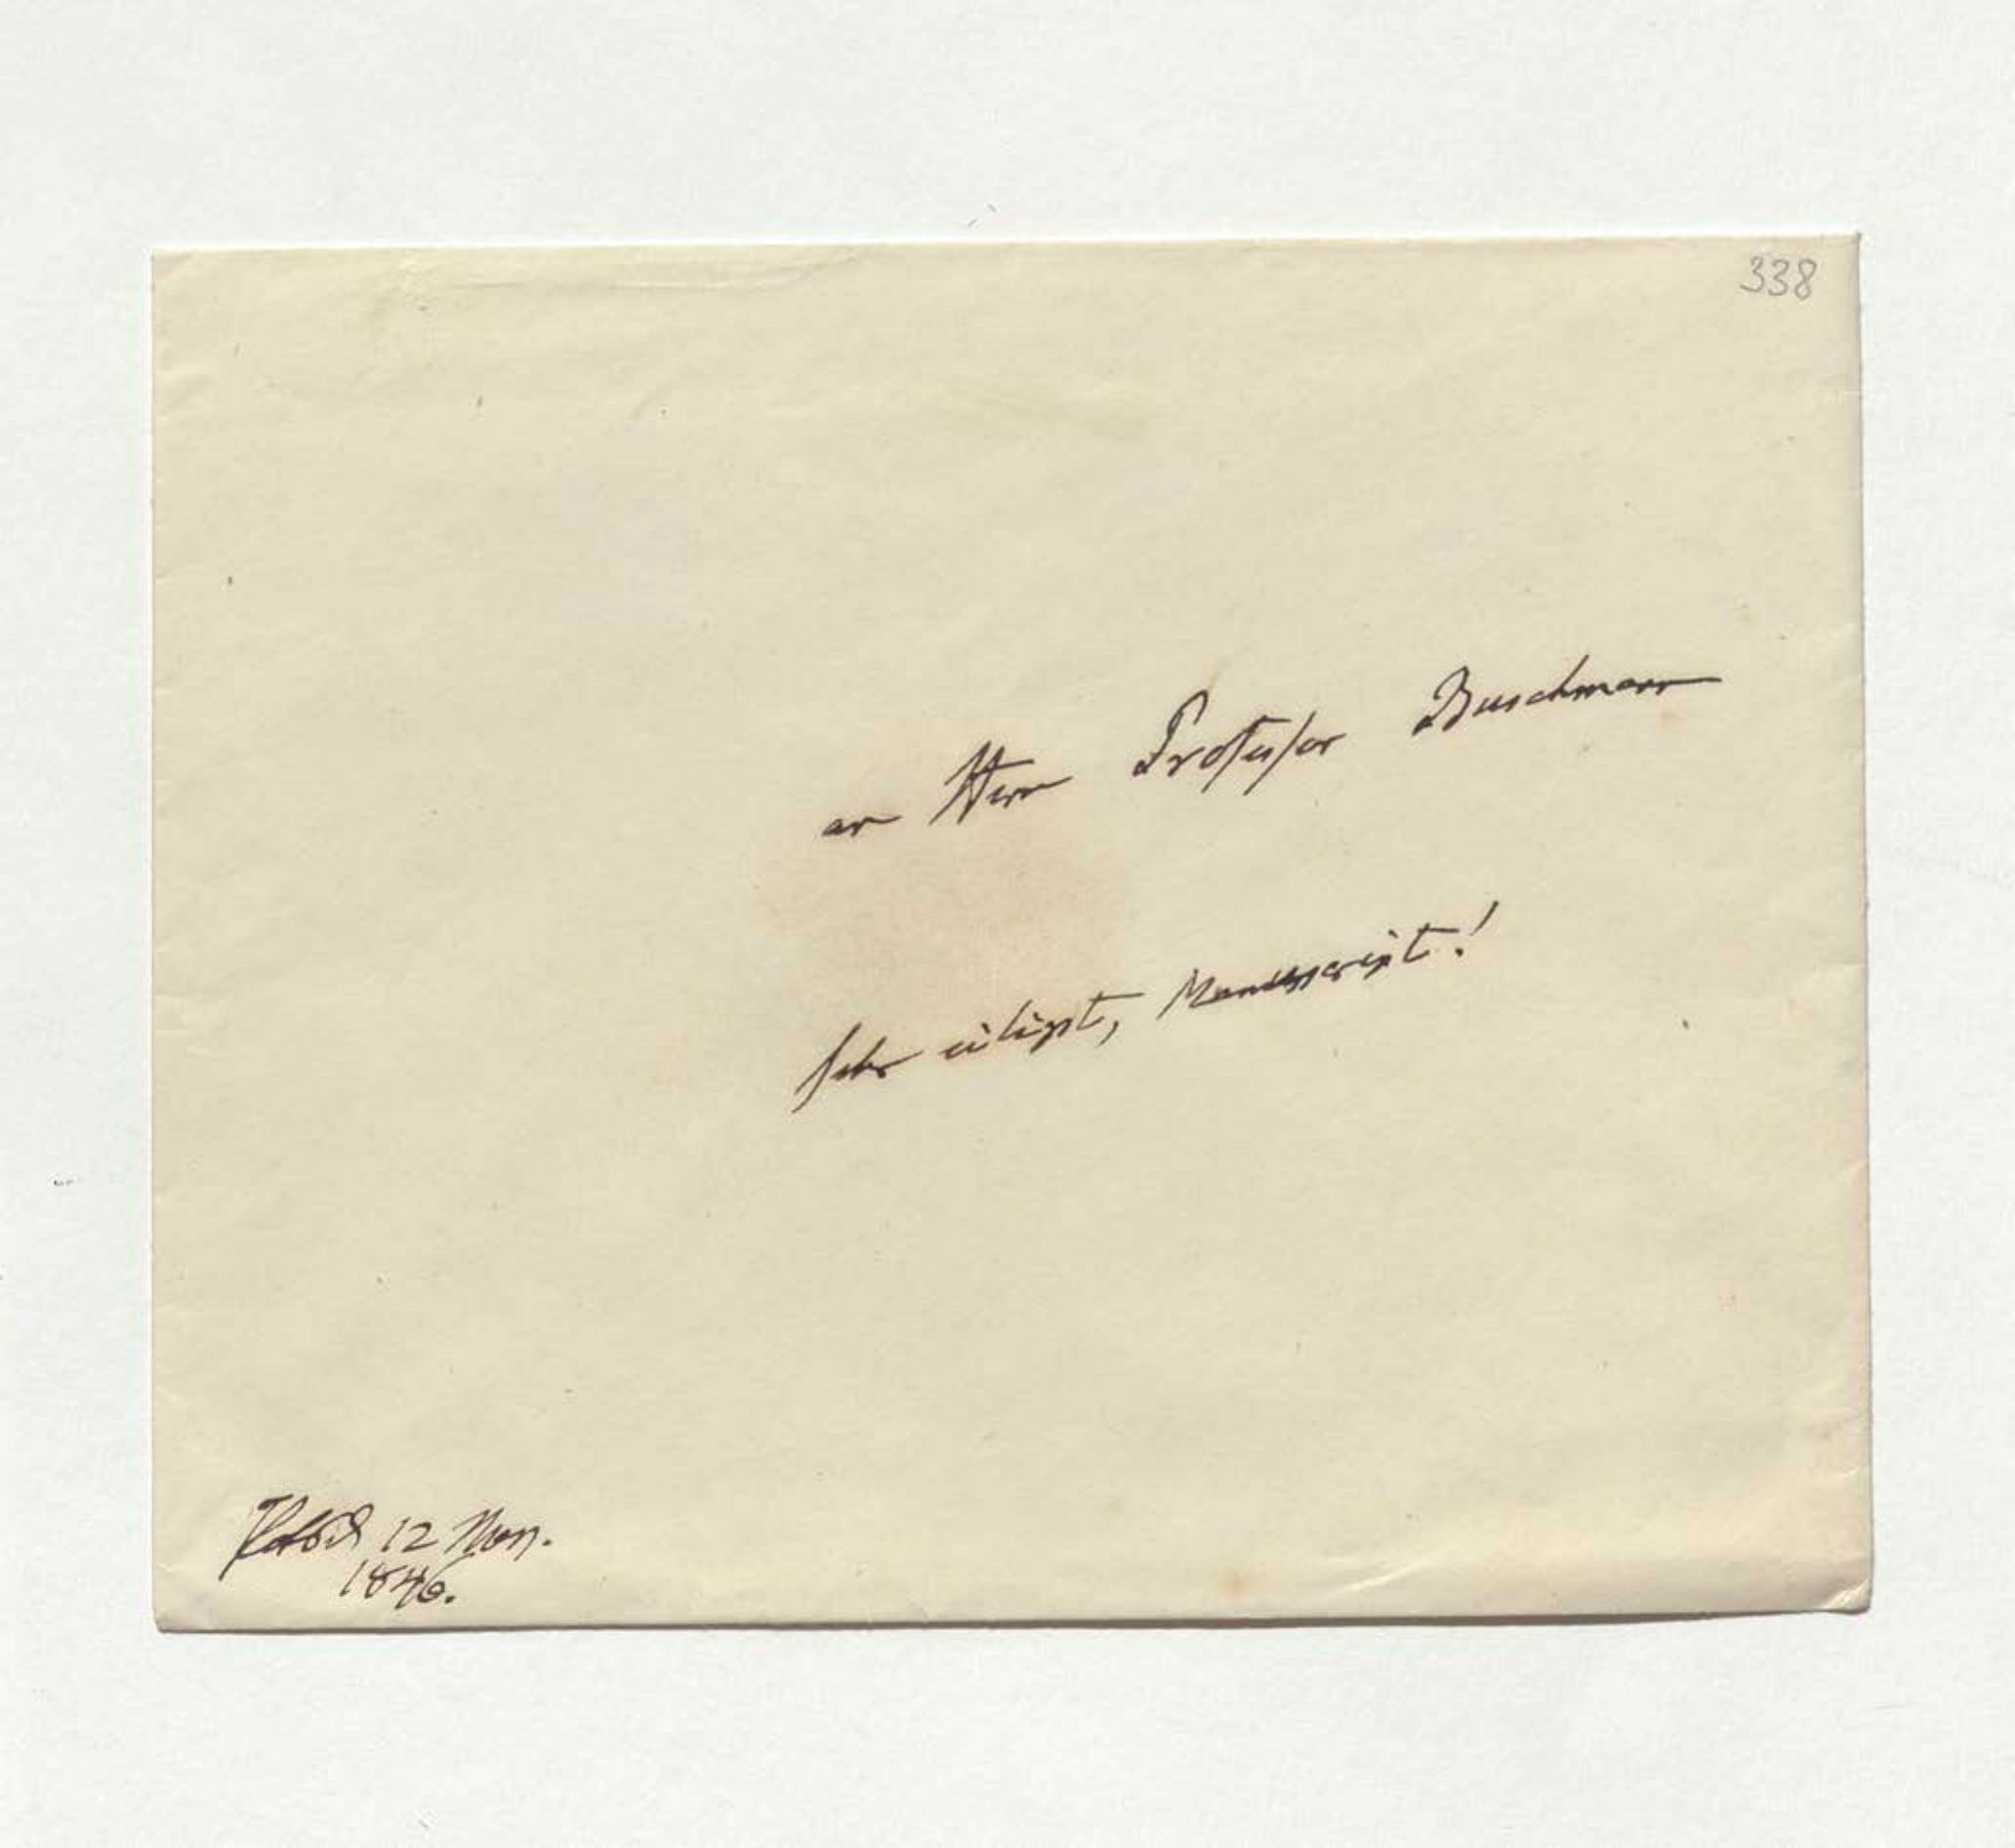 338
an Herrn Professor Buschmann
sehr eiligst, Manuscript!
12 Nov.
1846.